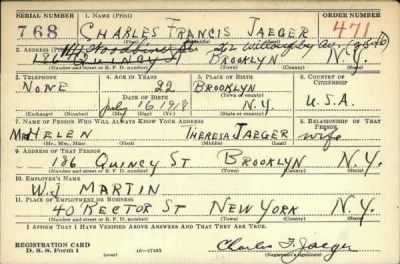 SERIAL NUMBER 1. NAME (Print) ORDER NUMBER
768 CHARLES FRANCIS JAEGER 471
(First) (Middle) (Last)
2. ADDRESS (Print) 262 Willoughby Av (2-5-46)
186 QUINCY ST BROOKLYN N.Y.
(Number and street or R. F. D. number) (Town) (County) (State)
3. TELEPHONE 4. AGE IN YEARS 5. PLACE OF BIRTH 6. COUNTRY OF CITIZENSHIP
NONE 22 BROOKLYN
DATE OF BIRTH (Town or county)
July 16 1918 N.Y. U.S.A.
(Exchange) (Number) (Mo.) (Day) (Yr.) (State or country)
7. NAME OF PERSON WHO WILL ALWAYS KNOW YOUR ADDRESS 8. RELATIONSHIP OF THAT PERSON
Mrs HELEN THERESA JAEGER wife
(Mr., Mrs., Miss) (First) (Middle) (Last)
9. ADDRESS OF THAT PERSON
186 QUINCY ST BROOKLYN N.Y.
(Number and street or R. F. D. number) (Town) (County) (State)
10. EMPLOYER'S NAME
W. J. MARTIN
11. PLACE OF EMPLOYMENT OR BUSINESS
40 RECTOR ST NEW YORK N.Y.
(Number and street or R. F. D. number) (Town) (County) (State)
I AFFIRM THAT I HAVE VERIFIED ABOVE ANSWERS AND THAT THEY ARE TRUE.
REGISTRATION CARD
D. S. S. Form 1 (over) 16—17105 Charles F. Jaeger
(Registrant's signature)